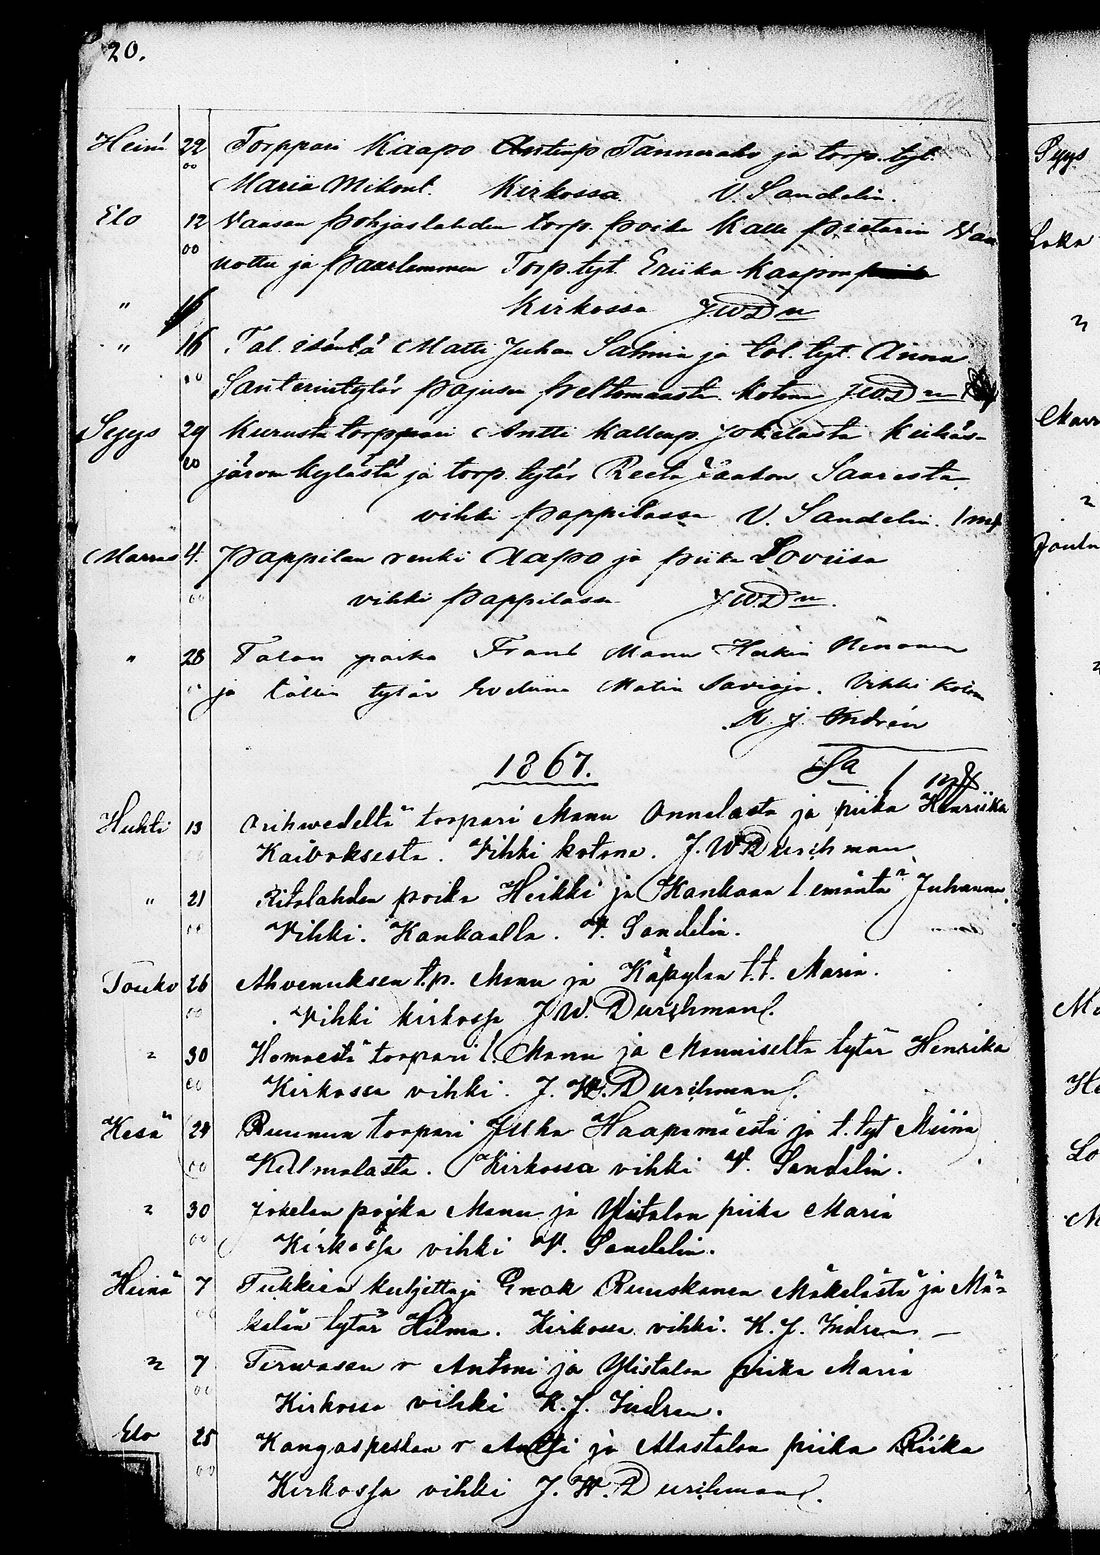 20.
Heinä 22 Torppari Kaapo Antinp Tannerako ja torp. tyt.
00 Maria Mikont. Kirkossa V. Sandelin.
Elo 12 Vaasan Pohjaslahden torp. poika Kalle Pietarin
00 ja Torp. tyt. Eriika Kaapon
" 16 Kirkossa JWDn
" 16 Tal. isäntä Matti Juhan Salmin ja tal. tyt. Anna
00 Santerintytär Pajusen Peltomaasta kotona JWDn
Syys 29 torppari Antti Kallenp. Jokelasta Keihäs-
00 järven kylästä ja torp. tytär Reeta Jaakon Saaresta
vihki Pappilassa V. Sandelin. 1 mk
Marras 4. Pappilan renki Aapo ja piika Loviisa
00 vihki Pappilassa JWDn.
" 28 Talon poika Frans Manu Heikin Ninonen
ja tytär Matin Savioja. Vihki kotona
K. J. Indrén
1867.
Huhti 13 torpari Manu Onnelasta ja piika Henriika
00 Kaivoksesta. Vihki kotona. J. W. Durchman
" 21 Ritolahden poika Heikki ja Kankaan l. emäntä Juhanna.
00 Vihki Kankaalla. V. Sandelin.
Touko 26 Ahvenuksen t.p. Manu ja Käpylän t.t. Maria.
00 Vihki kirkossa J W. Durchman
" 30 torpari Manu ja Manniselta tytär Henrika
00 Kirkossa vihki. J. W. Durchman
Kesä 24 Ruunun torpari Jukka Haapamäestä ja t. tyt Miina
00 Kulmalasta. Kirkossa vihki V. Sandelin.
" 30 Jokelan pojka Manu ja Ylitalon piika Maria
00 Kirkossa vihki V. Sandelin.
Heinä 7 Tukkien kuljettaja Enok Ruuskanen Mäkelästä ja Mä-
00 kelän tytär Hilma. Kirkossa vihki. K. J. Indren
" 7 Terwasen r Antoni ja Ylistalon piika Maria
00 Kirkossa vihki K. J. Indren.
Elo 25 Kangaspeskan r Antti ja Alastalon piika Riika
00 Kirkossa vihki J. W. Durchman.
Syys
Loka
"
Marr
"
Joulu
"
Ma
He
Lo
M